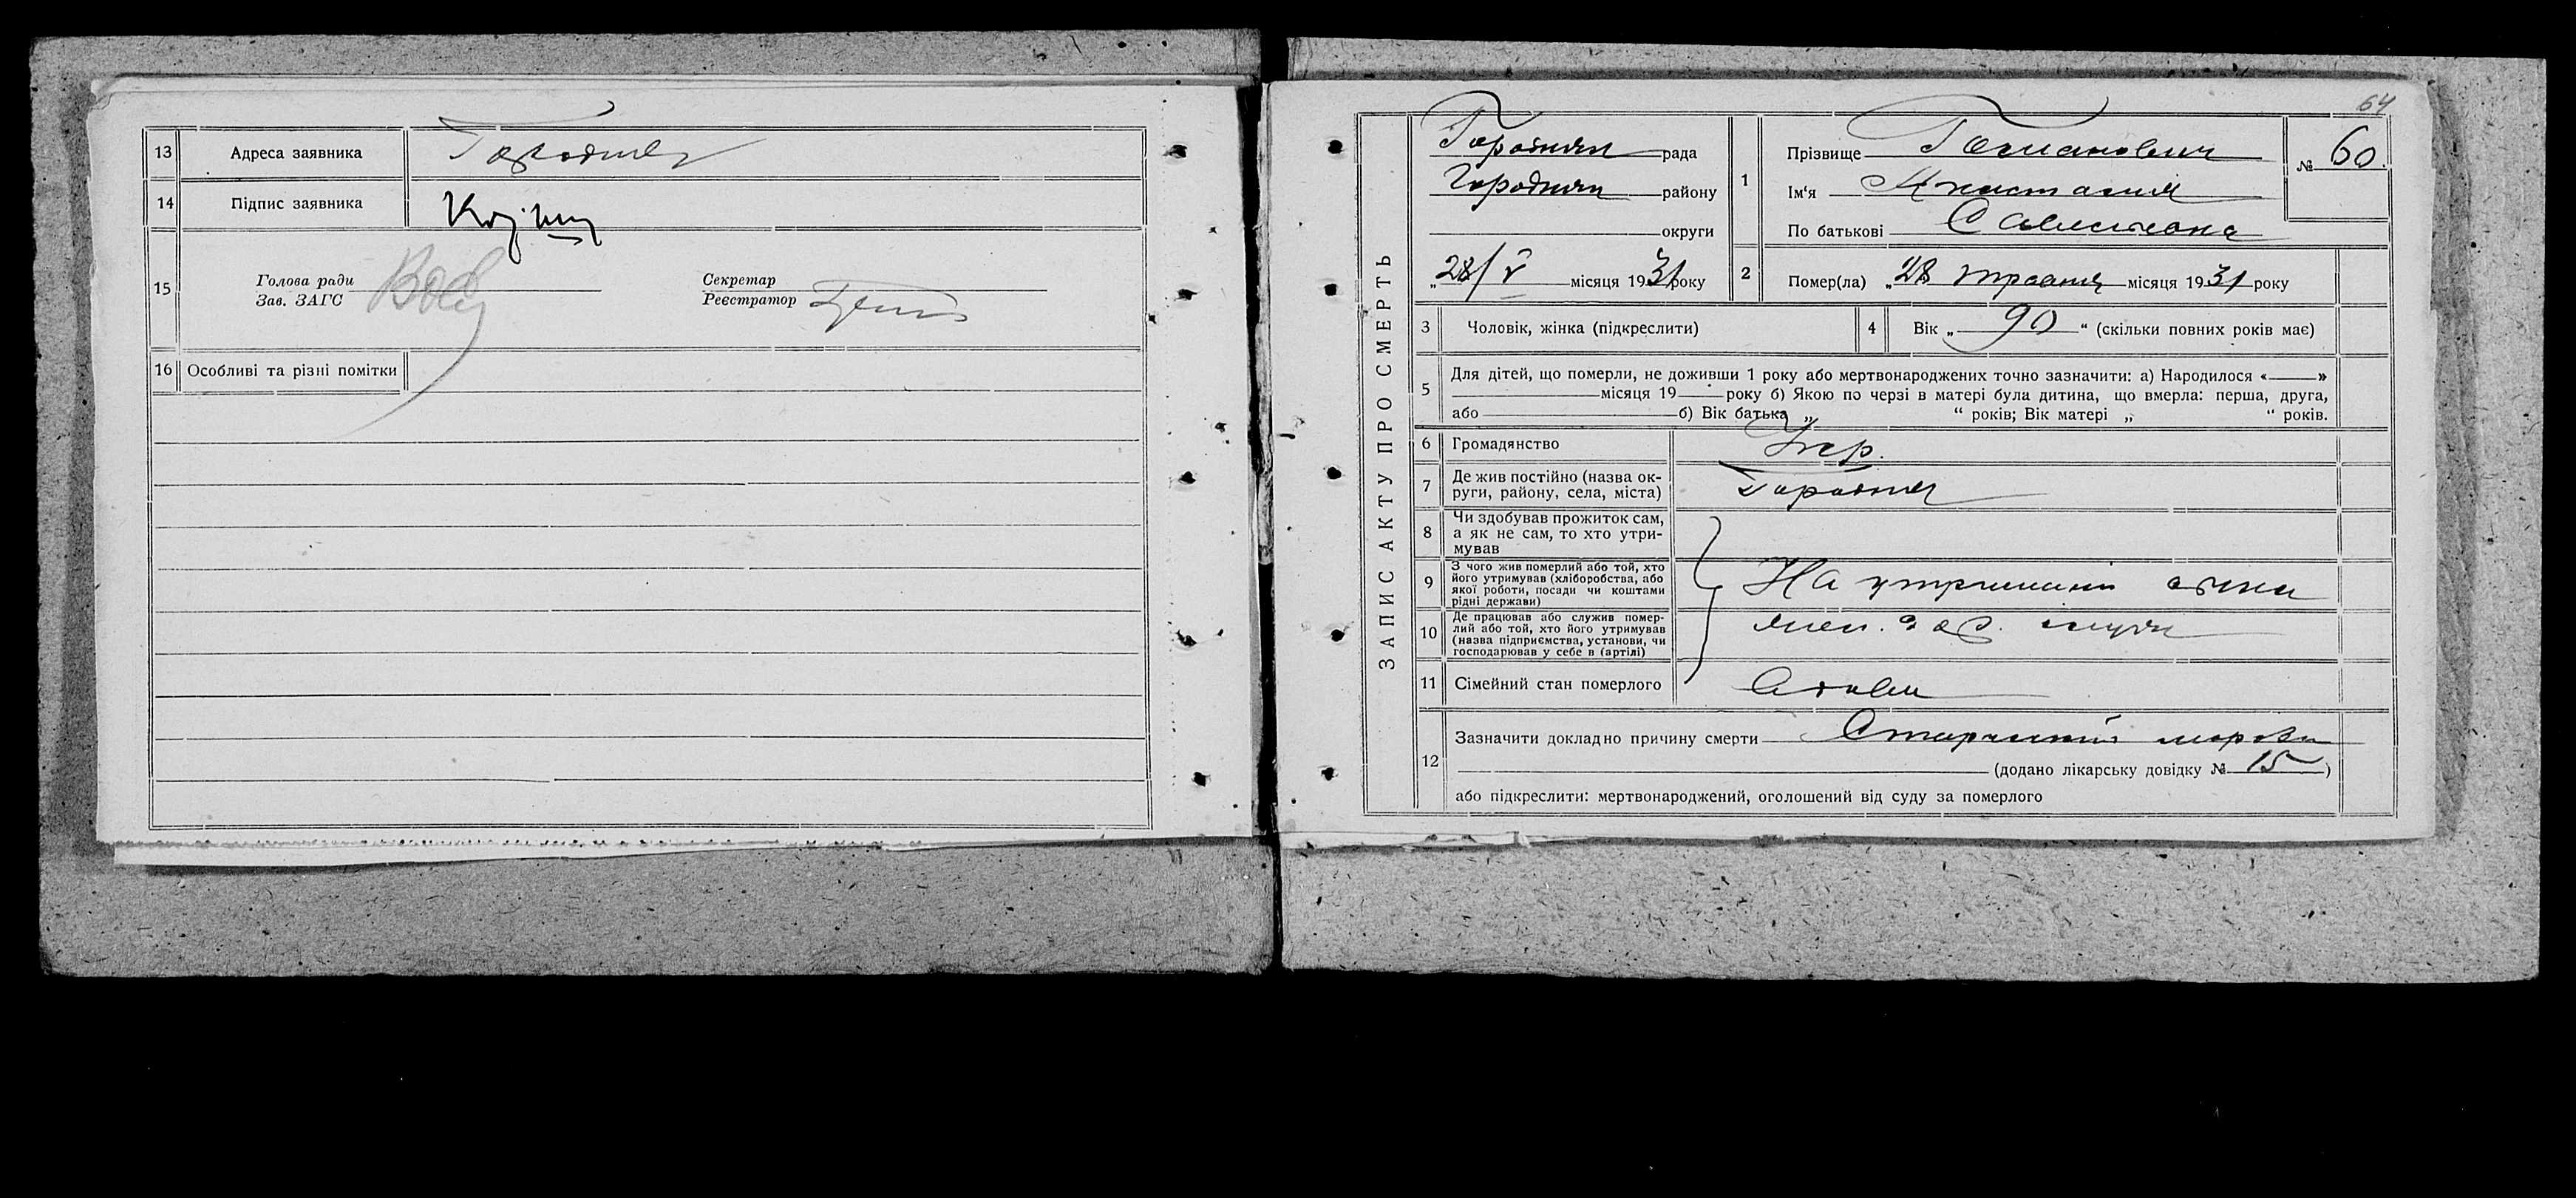 13 Адреса заявника Городня
14 Підпис заявника
15 Голова ради
Зав. ЗАГС
Секретар
Реєстратор
16 Особливі та різні помітки
64
ЗАПИС АКТУ ПРО СМЕРТЬ
Городня рада
Городня району
округи
„28/V місяця 1931 року
1 Прізвище
Ім'я Анастасия
По батькові
№ 60.
2 Помер(ла) „28 травня місяця 1931 року
3 Чоловік, жінка (підкреслити)
4 Вік „90“ (скільки повних років має)
5 Для дітей, що померли, не доживши 1 року або мертвонароджених точно зазначити: а) Народилося « »
місяця 19 року б) Якою по черзі в матері була дитина, що вмерла: перша, друга,
або б) Вік батька „ “ років; Вік матері „ “ років.
6 Громадянство Укр.
7 Де жив постійно (назва ок-
руги, району, села, міста) Городня
8 Чи здобував прожиток сам,
а як не сам, то хто утри-
мував
9 З чого жив померлий або той, хто
його утримував (хліборобства, або
якої роботи, посади чи коштами
рідні держави)
На утриманні сина
10 Де працював або служив помер-
лий або той, хто його утримував
(назва підприємства, установи, чи
господарював у себе в (артілі)
11 Сімейний стан померлого
12 Зазначити докладно причину смерти
(додано лікарську довідку № 15)
або підкреслити: мертвонароджений, оголошений від суду за померлого